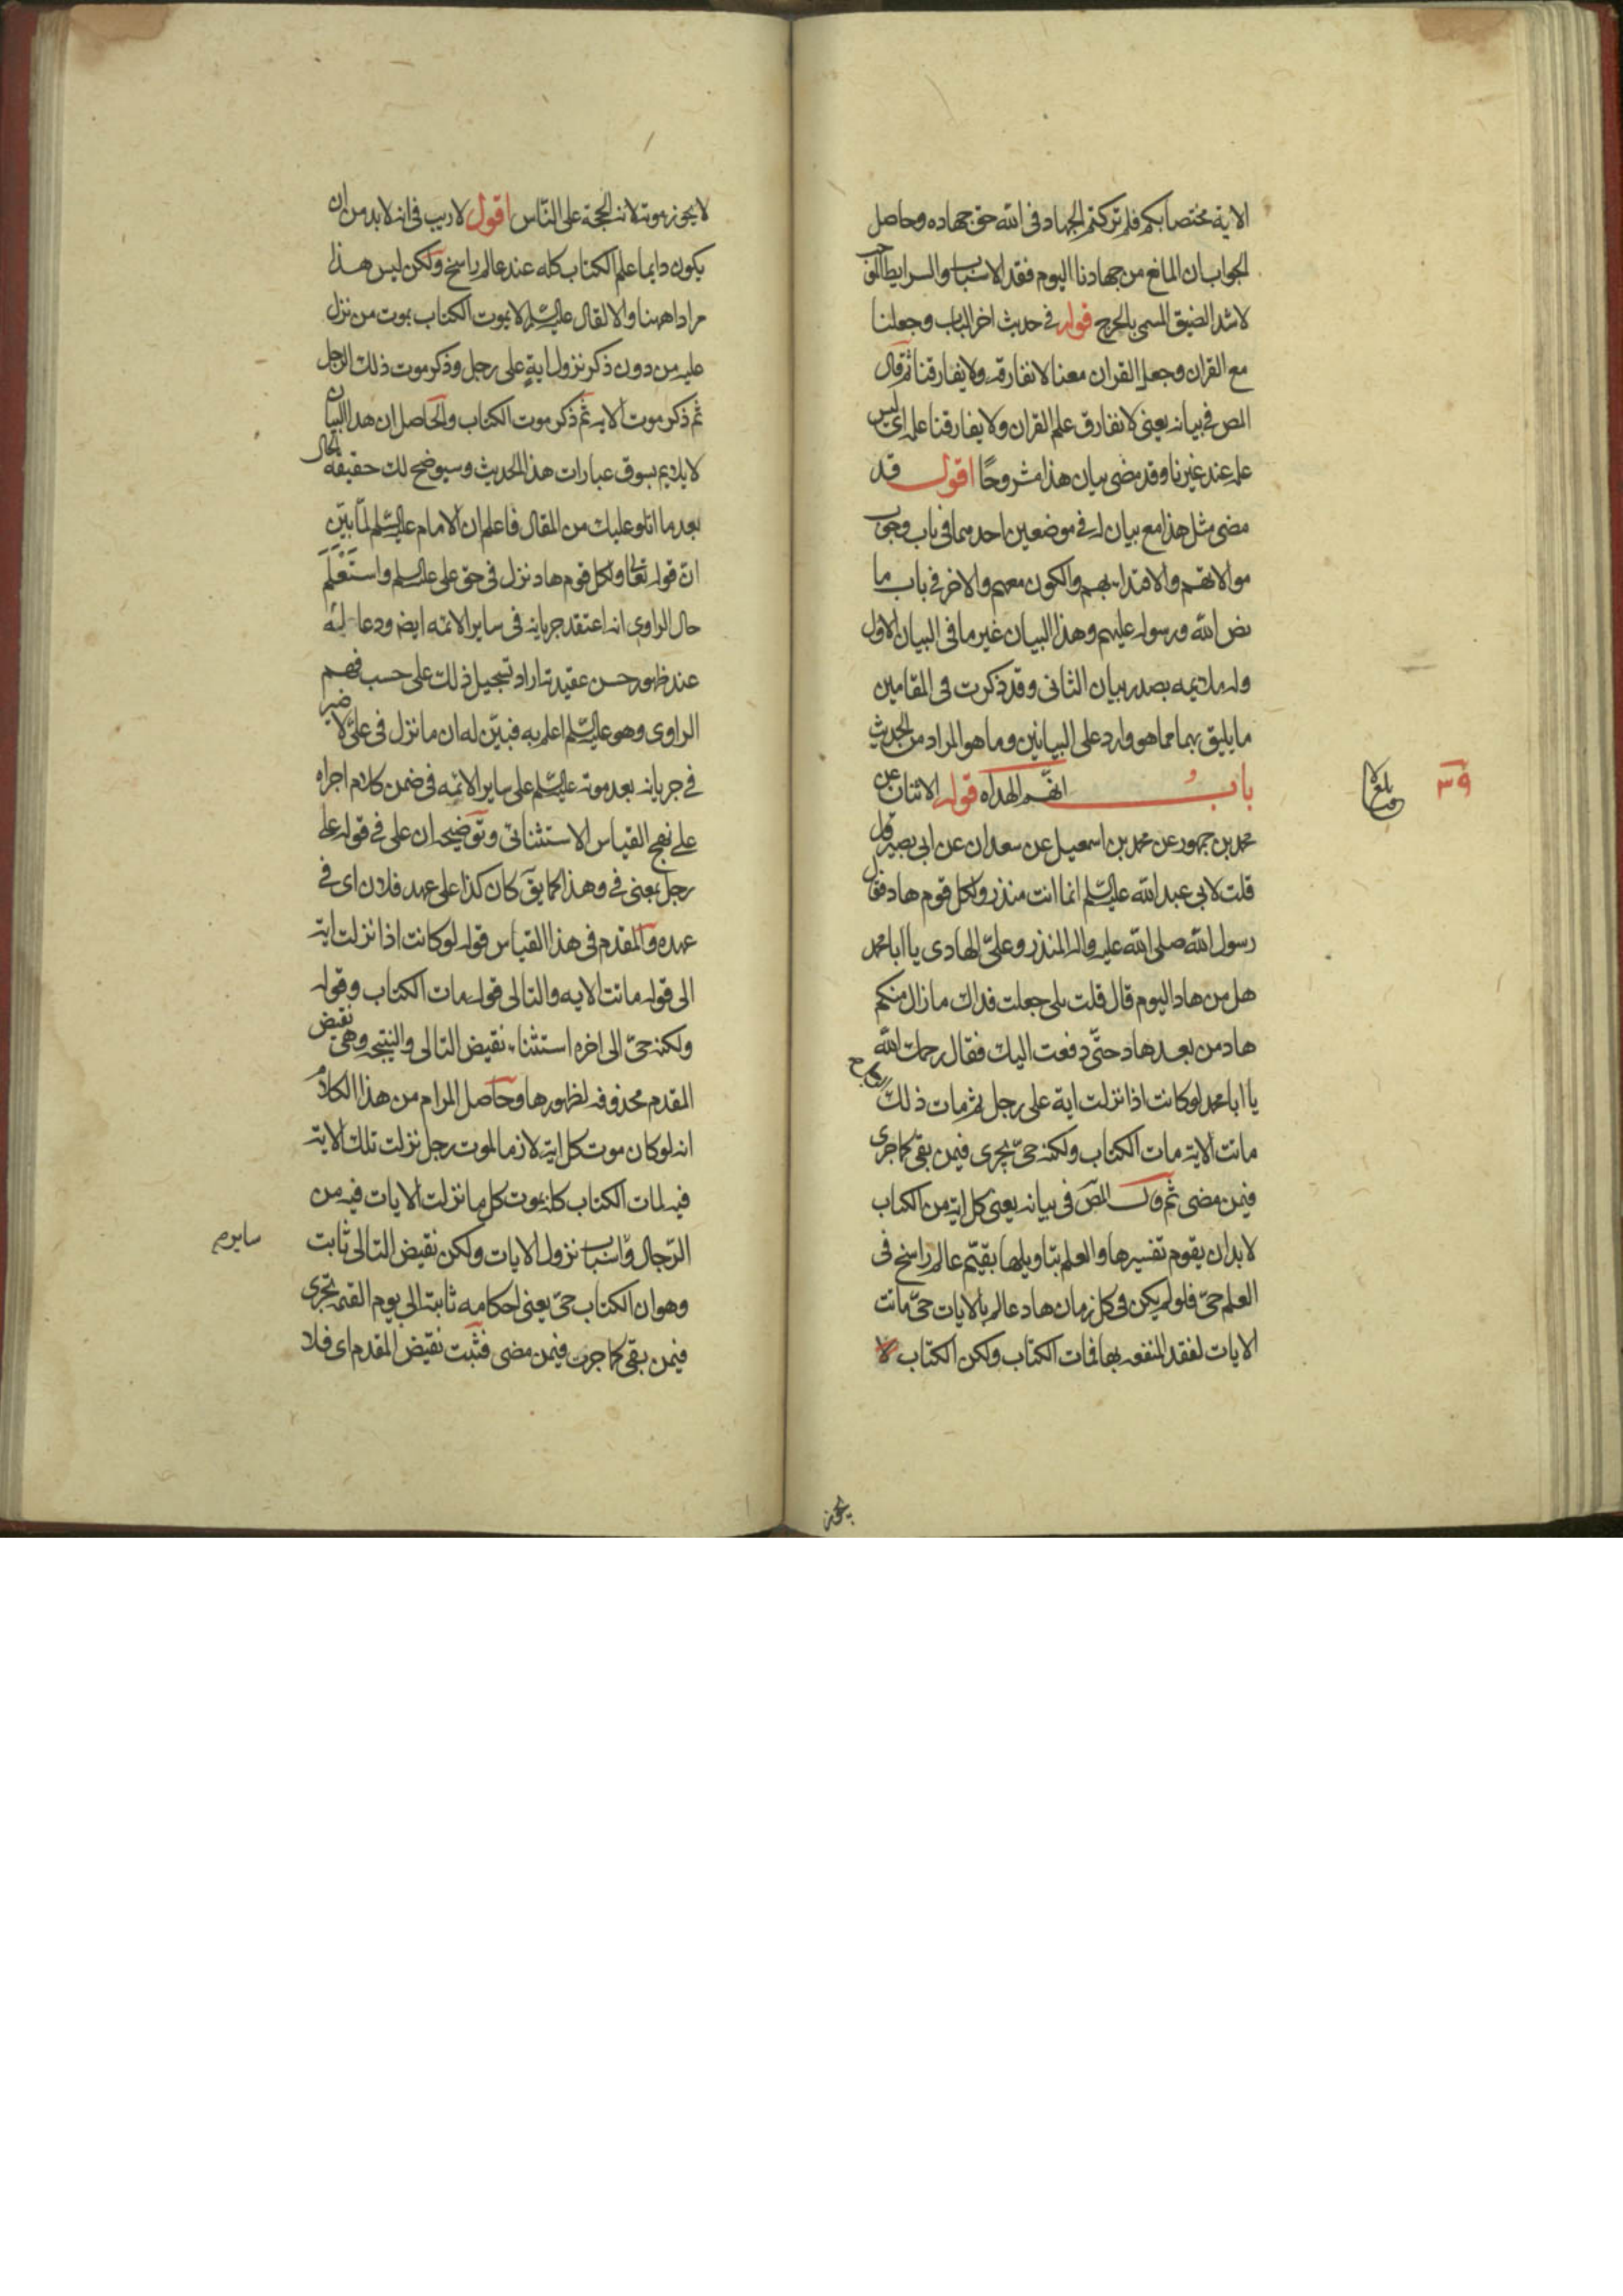 الاية مختصا بكم فلم تركتم الجهاد في الله حق جهاده وحاصل
الجواب ان المانع من جهادنا اليوم فقد الاسباب والسرايط
لاشد الضيق المسمى بالحرج قوله في حديث اخر الباب وجعلنا
مع القران وجعل القران معنا لا نفارقه ولا يفارقنا ثم قال
المص في بيانه يعني لا نفارق علم القران ولا يفارقنا علمه اي ليس
علمه عند غيرنا وقد مضى بيان هذا مشروحًا اقول قد
مضى مثل هذا مع بيان له في موضعين احدهما في باب وجوب
موالاتهم والاقتداء بهم والكون معهم والاخر في باب ما
نص الله ورسوله عليهم وهذا البيان غير ما في البيان الاول
بصدر بيان الثاني وقد ذكرت في المقامين
ما يليق بهما مما هو وارد على البيانين وما هو المراد من الحديث
باب انهم الهداه قوله الاثنان عن
محمد بن جمهور عن محمد بن اسمعيل عن سعدان عن ابي بصير قال
قلت لابي عبد الله عليه السلم انما انت منذر ولكل قوم هاد فقال
رسول الله صلى الله عليه واله المنذر وعليّ الهادى يا ابا محمد
هل من هاد اليوم قال قلت بلى جعلت فداك ما زال منكم
هاد من بعد هاد حتّى دفعت اليك فقال رحمك الله
يا ابا محمد لو كانت اذا نزلت اية على رجل ثم مات ذلك الرجل
ماتت الاية مات الكتاب ولكنه حيّ يجرى فيمن بقي كما جرى
فيمن مضى ثم قال المص في بيانه يعني كل اية من الكتاب
لا بد ان يقوم تفسيرها والعلم بتاويلها بقيّم عالم راسخ في
العلم حيّ فلو لم يكن في كل زمان هاد عالم بالايات حيّ ماتت
الايات لفقد المنفعه بها فمات الكتاب ولكن الكتاب لا
٣٩
يجوز
لا يجوز موته لانه الحجة على النّاس اقول لا ريب في انه لا بد من ان
يكون دايما علم الكتاب كله عند عالم راسخ ولكن ليس هذا
مرادا هنا والا لقال عليه السلم لا يموت الكتاب بموت من نزل
عليه من دون ذكر نزول اية على رجل وذكر موت ذلك الرجل
ثم ذكر موت الايه ثم ذكر موت الكتاب والحاصل ان هذا البيان
لا يلايم بسوق عبارات هذا الحديث وسيوضح لك حقيقة الحال
بعد ما اتلو عليك من المقال فاعلم ان الامام عليه السلم لمّا بيّن
انّ قوله تعالى ولكل قوم هاد نزل في حق علي عليه السلم واستعلم
حال الراوي انه اعتقد جريانه في ساير الائمه ايضا ودعا له
عند ظهور حسن عقيدته اراد تسجيل ذلك على حسب فهم
الراوى وهو عليه السلم اعلم به فبيّن له ان ما نزل في عليّ لا ضير
في جريانه بعد موته عليه السلم على ساير الائمه في ضمن كلام اجراه
على نهج القياس الاستثنائي وتوضيحه ان على في قوله على
رجل بمعنى في وهذا كما يق كان كذا على عهد فلان اى في
عهده والمقدم في هذا القياس قوله لو كانت اذا نزلت اية
الى قوله ماتت الايه والتالى قوله مات الكتاب وقوله
ولكنه حيّ الى اخره استثناء نقيض التالى والنتيجه وهى نقيض
المقدم محذوفه لظهورها وحاصل المرام من هذا الكلام
انه لو كان موت كل اية لازما لموت رجل نزلت تلك الاية
فيه لمات الكتاب كله بموت كل ما نزلت الايات فيه من
الرجال واسباب نزول الايات ولكن نقيض التالى ثابت
وهو ان الكتاب حيّ يعني احكامه ثابتة الى يوم القيمة تجرى
فيمن بقي كما جرت فيمن مضى فثبت نقيض المقدم اى فلا